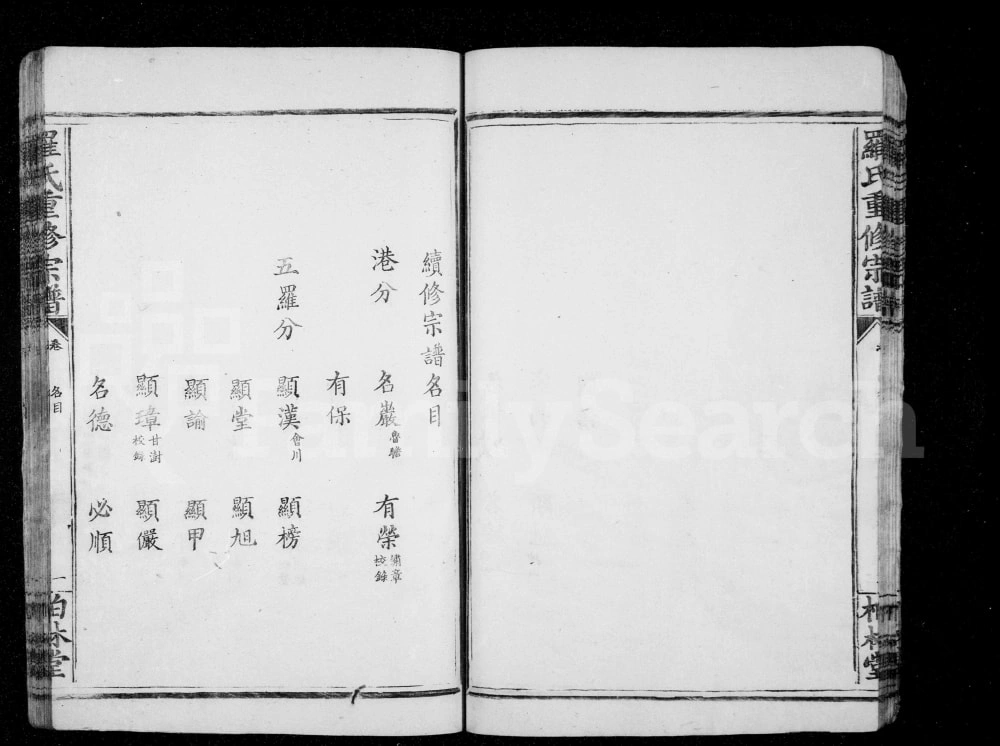 羅氏重修宗譜
柏林堂
續修宗譜名目
港分 名巖 魯瞻 有榮 繡章 校錄
有保
五羅分 顯漢 會川 顯榜
顯堂 顯旭
顯諭 顯甲
顯璋 甘澍 校錄 顯儼
名德 必順
羅氏重修宗譜
卷
名目
一
柏林堂
FamilySearch